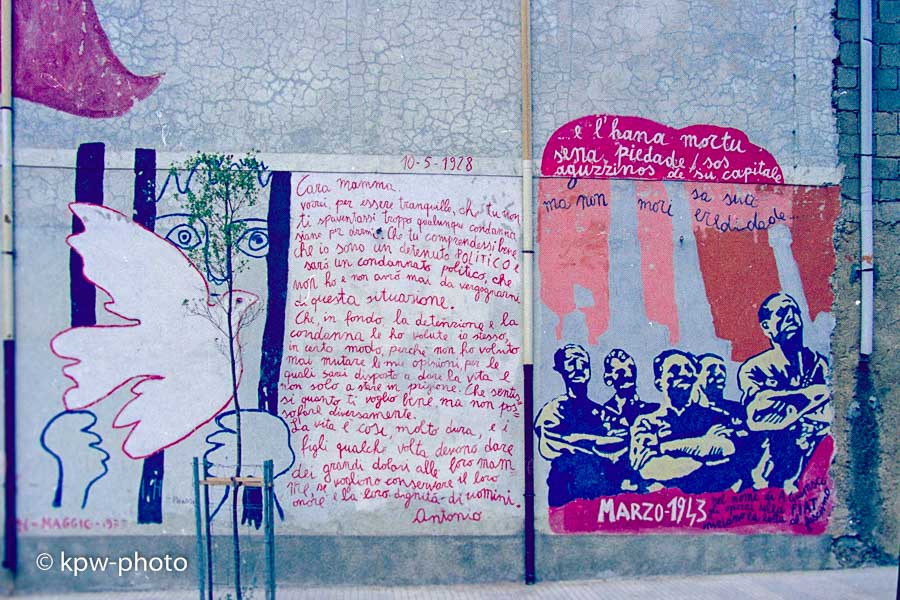 10-5-1928
Cara mamma.
vorrei, per essere tranquillo, che tu non
ti spaventassi troppo qualunque condanna
siano per darmi. Che tu comprendessi bene
che io sono un detenuto POLITICO e
sarò un condannato politico, che
non ho e non avrò mai da vergognarmi
di questa situazione.
Che, in fondo, la detenzione e la
condanna le ho volute io stesso,
in certo modo, perché non ho voluto
mai mutare le mie opinioni, per le
quali sarei disposto a dare la vita e
non solo a stare in prigione. Che
si quanto ti voglio bene ma non pos-
so fare diversamente.
La vita è così, molto dura, e i
figli qualche volta devono dare
dei grandi dolori alle loro mam
me, se vogliono conservare il loro
onore e la loro dignità di uomini.
Antonio
MAGGIO-1977
... e l'hana mortu
sena piedade, sos
aguzzinos de su capitale
ma non mori sa sua
eredidade...
MARZO-1943
nel nome di A. Gramsci
FIAT
© kpw-photo